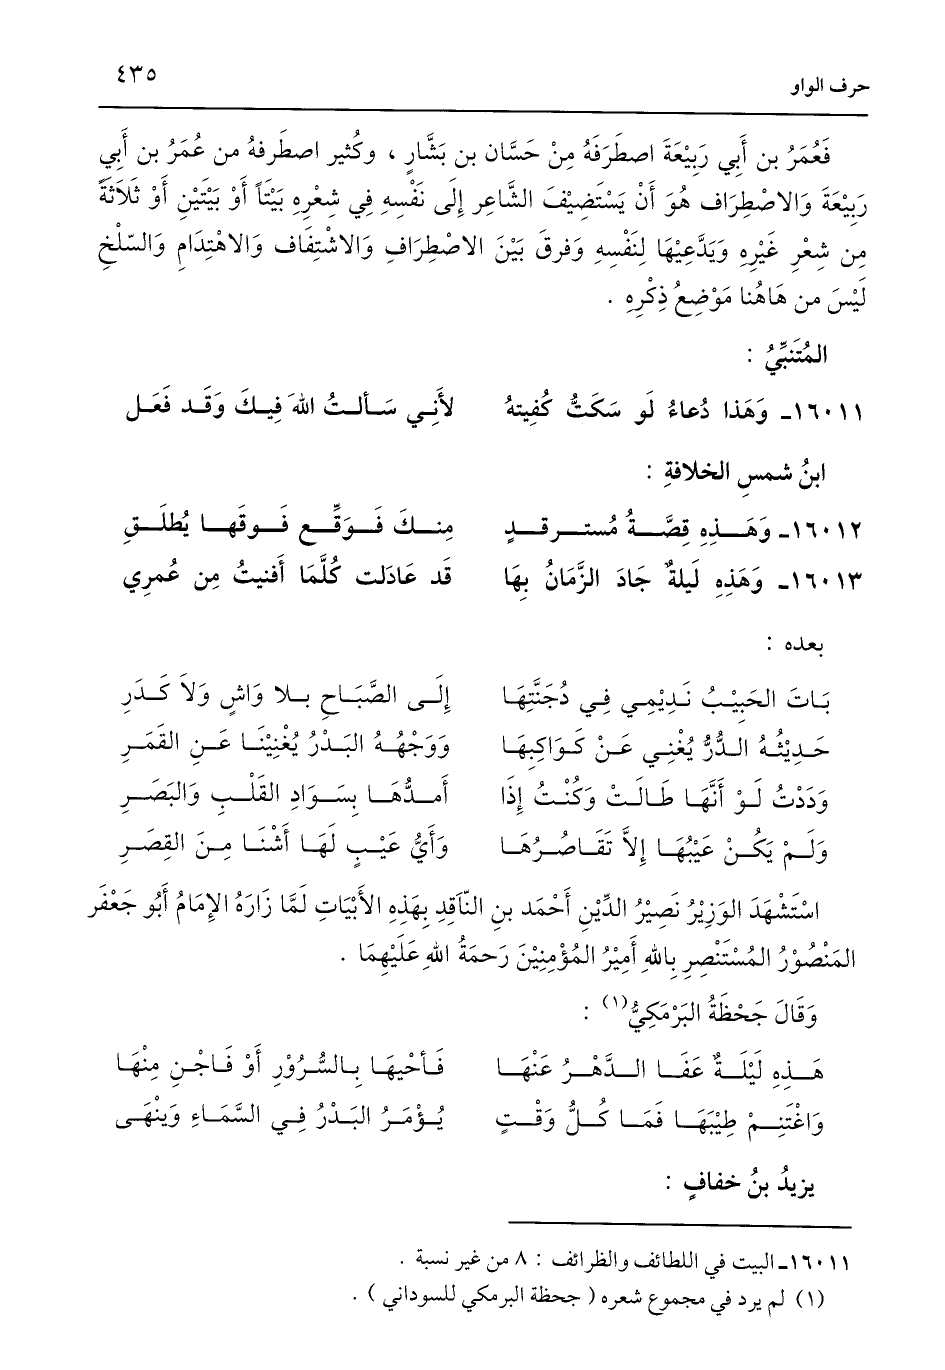 حرف الواو ٤٣٥
فَعُمَرُ بن أَبي رَبِيْعَةَ اصطَرَفَهُ مِنْ حَسَّان بن بَشَّارٍ ، وكُثير اصطَرفهُ من عُمَرُ بن أَبي
رَبِيْعَةَ وَالاصْطِرَاف هُوَ أَنْ يَسْتَضِيْفَ الشَّاعِر إِلَى نَفْسِهِ فِي شِعْرِهِ بَيْتَاً أَوْ بَيْتَيْنِ أَوْ ثَلَاثَةً
مِن شِعْرِ غَيْرِهِ وَيَدَّعِيْهَا لِنَفْسِهِ وَفرق بَيْنَ الاصْطِرَافِ وَالاشْتِفَاف وَالاهْتِدَامِ وَالسّلْخِ
لَيْسَ من هَاهُنا مَوْضِعُ ذِكْرِهِ .
المُتَنَبِّيُ :
١٦٠١١ـ وَهَذا دُعاءُ لَو سَكَتُّ كُفِيتهُ لأَنِي سَألتُ اللهَ فِيكَ وَقَد فَعَل
ابنُ شمسِ الخلافةِ :
١٦٠١٢ـ وَهَذِهِ قِصَّةُ مُسترقدٍ مِنكَ فَوَقِّع فَوقَها يُطلَقِ
١٦٠١٣ـ وَهَذِهِ لَيلةٌ جَادَ الزَّمَانُ بِهَا قَد عَادَلت كُلَّمَا أَفنيتُ مِن عُمرِي
بعده :
بَاتَ الحَبِيْبُ نَدِيْمِي فِي دُجَنَّتِهَا إِلَى الصَّبَاحِ بلا وَاشٍ وَلاَ كَدَرِ
حَدِيْثُهُ الدُّرُّ يُغْنِي عَنْ كَوَاكِبِهَا وَوَجْهُهُ البَدْرُ يُغْنِيْنَا عَنِ القَمَرِ
وَدَدْتُ لَوْ أَنَّهَا طَالَتْ وَكُنْتُ إِذَا أَمدُّهَا بِسَوَادِ القَلْبِ وَالبَصَرِ
وَلَمْ يَكُنْ عَيْبُهَا إِلاَّ تَقَاصُرُهَا وَأَيُّ عَيْبٍ لَهَا أَشْنَا مِنَ القِصَرِ
اسْتَشْهَدَ الوَزِيْرُ نَصِيْرُ الدِّيْنِ أَحْمَد بنِ النَّاقِدِ بِهَذِهِ الأَبْيَاتِ لَمَّا زَارَهُ الإِمَامُ أَبُو جَعْفَر
المَنْصُوْرُ المُسْتَنْصِرِ بِاللهِ أَمِيْرُ المُؤْمِنِيْنَ رَحمَةُ اللهِ عَلَيْهِمَا .
وَقَالَ جَحْظَةُ البَرْمَكِيُّ(١) :
هَذِهِ لَيْلَةٌ عَفَا الدَّهْرُ عَنْهَا فَأحْيهَا بِالسُّرُوْرِ أَوْ فَاجْنِ مِنْهَا
وَاغْتَنِمْ طِيْبَهَا فَمَا كُلُّ وَقْتٍ يُؤْمَرُ البَدْرُ فِي السَّمَاءِ وَيَنْهَى
يزيدُ بنُ خفافٍ :
١٦٠١١ـ البيت في اللطائف والظرائف : ٨ من غير نسبة .
(١) لم يرد في مجموع شعره ( جحظة البرمكي للسوداني ) .